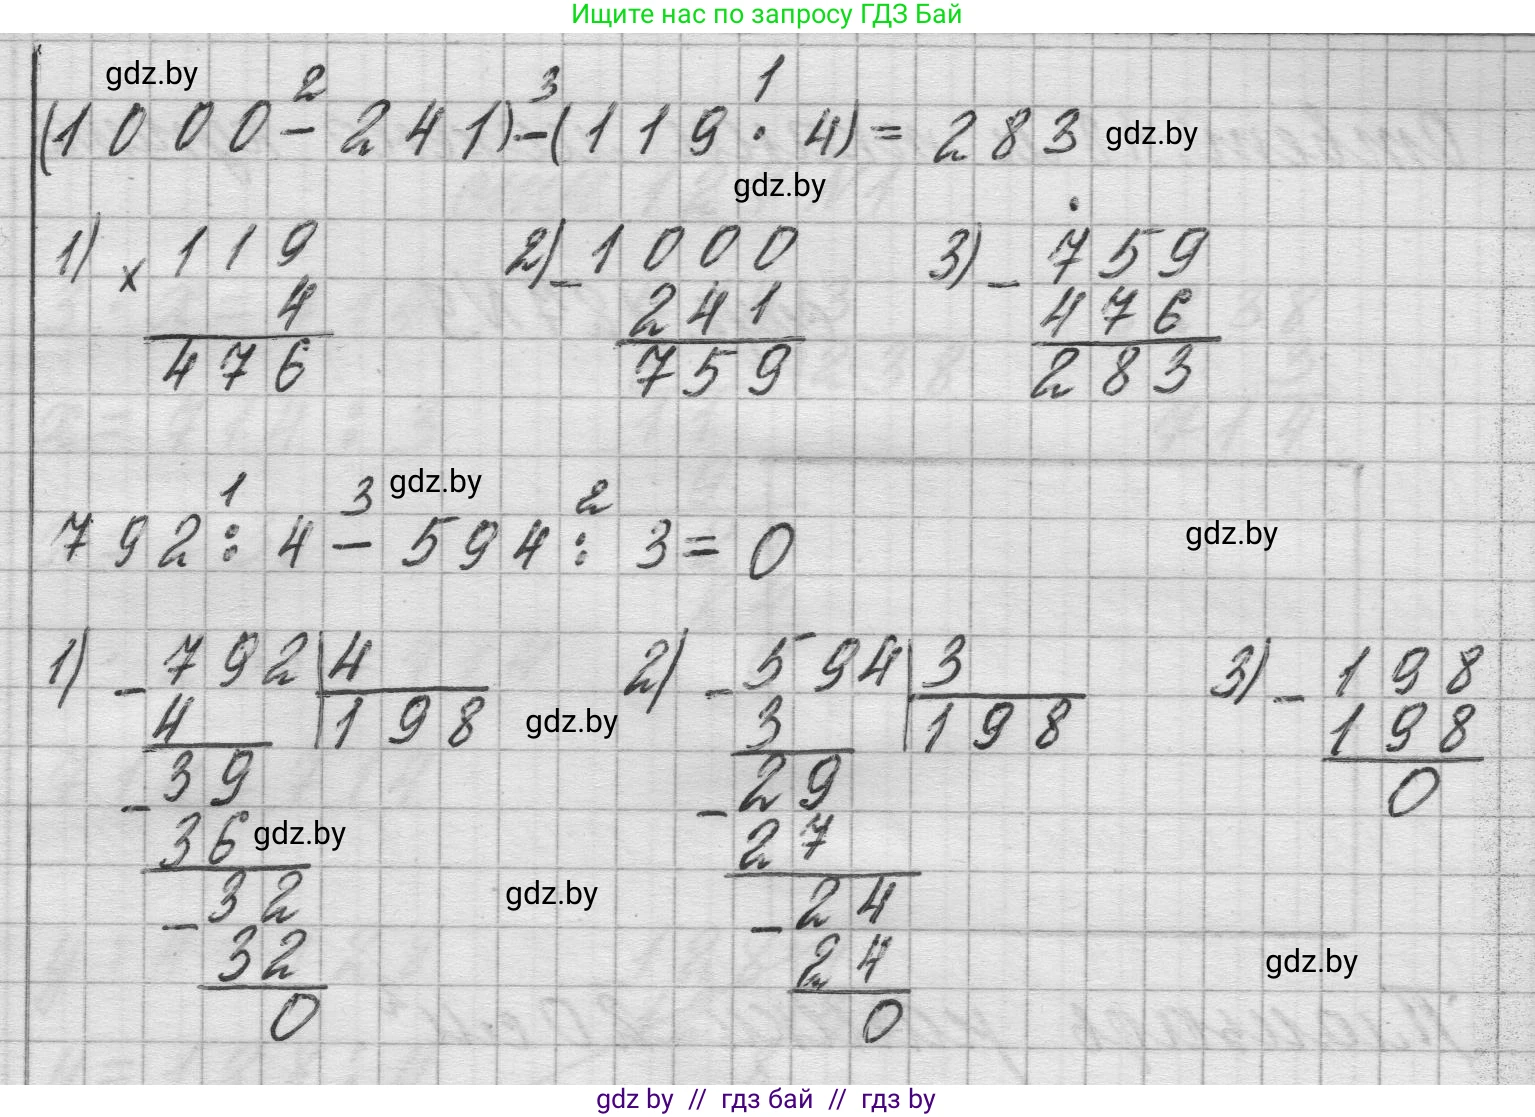 Ищите нас по запросу ГДЗ Бай
gdz.by
2 3 1
(1000-241)-(119·4)=283 gdz.by
gdz.by
1) × 119 2) - 1000 3) - 759
4 241 476
476 759 283
1 3 gdz.by 2
792:4-594:3=0 gdz.by
1) - 792 | 4 2) - 594 | 3 3) - 198
4 198 gdz.by 3 198 198
- 39 - 29 0
36 gdz.by 27
- 32 gdz.by - 24
32 24 gdz.by
0 0
gdz by // гдз бай // гдз by